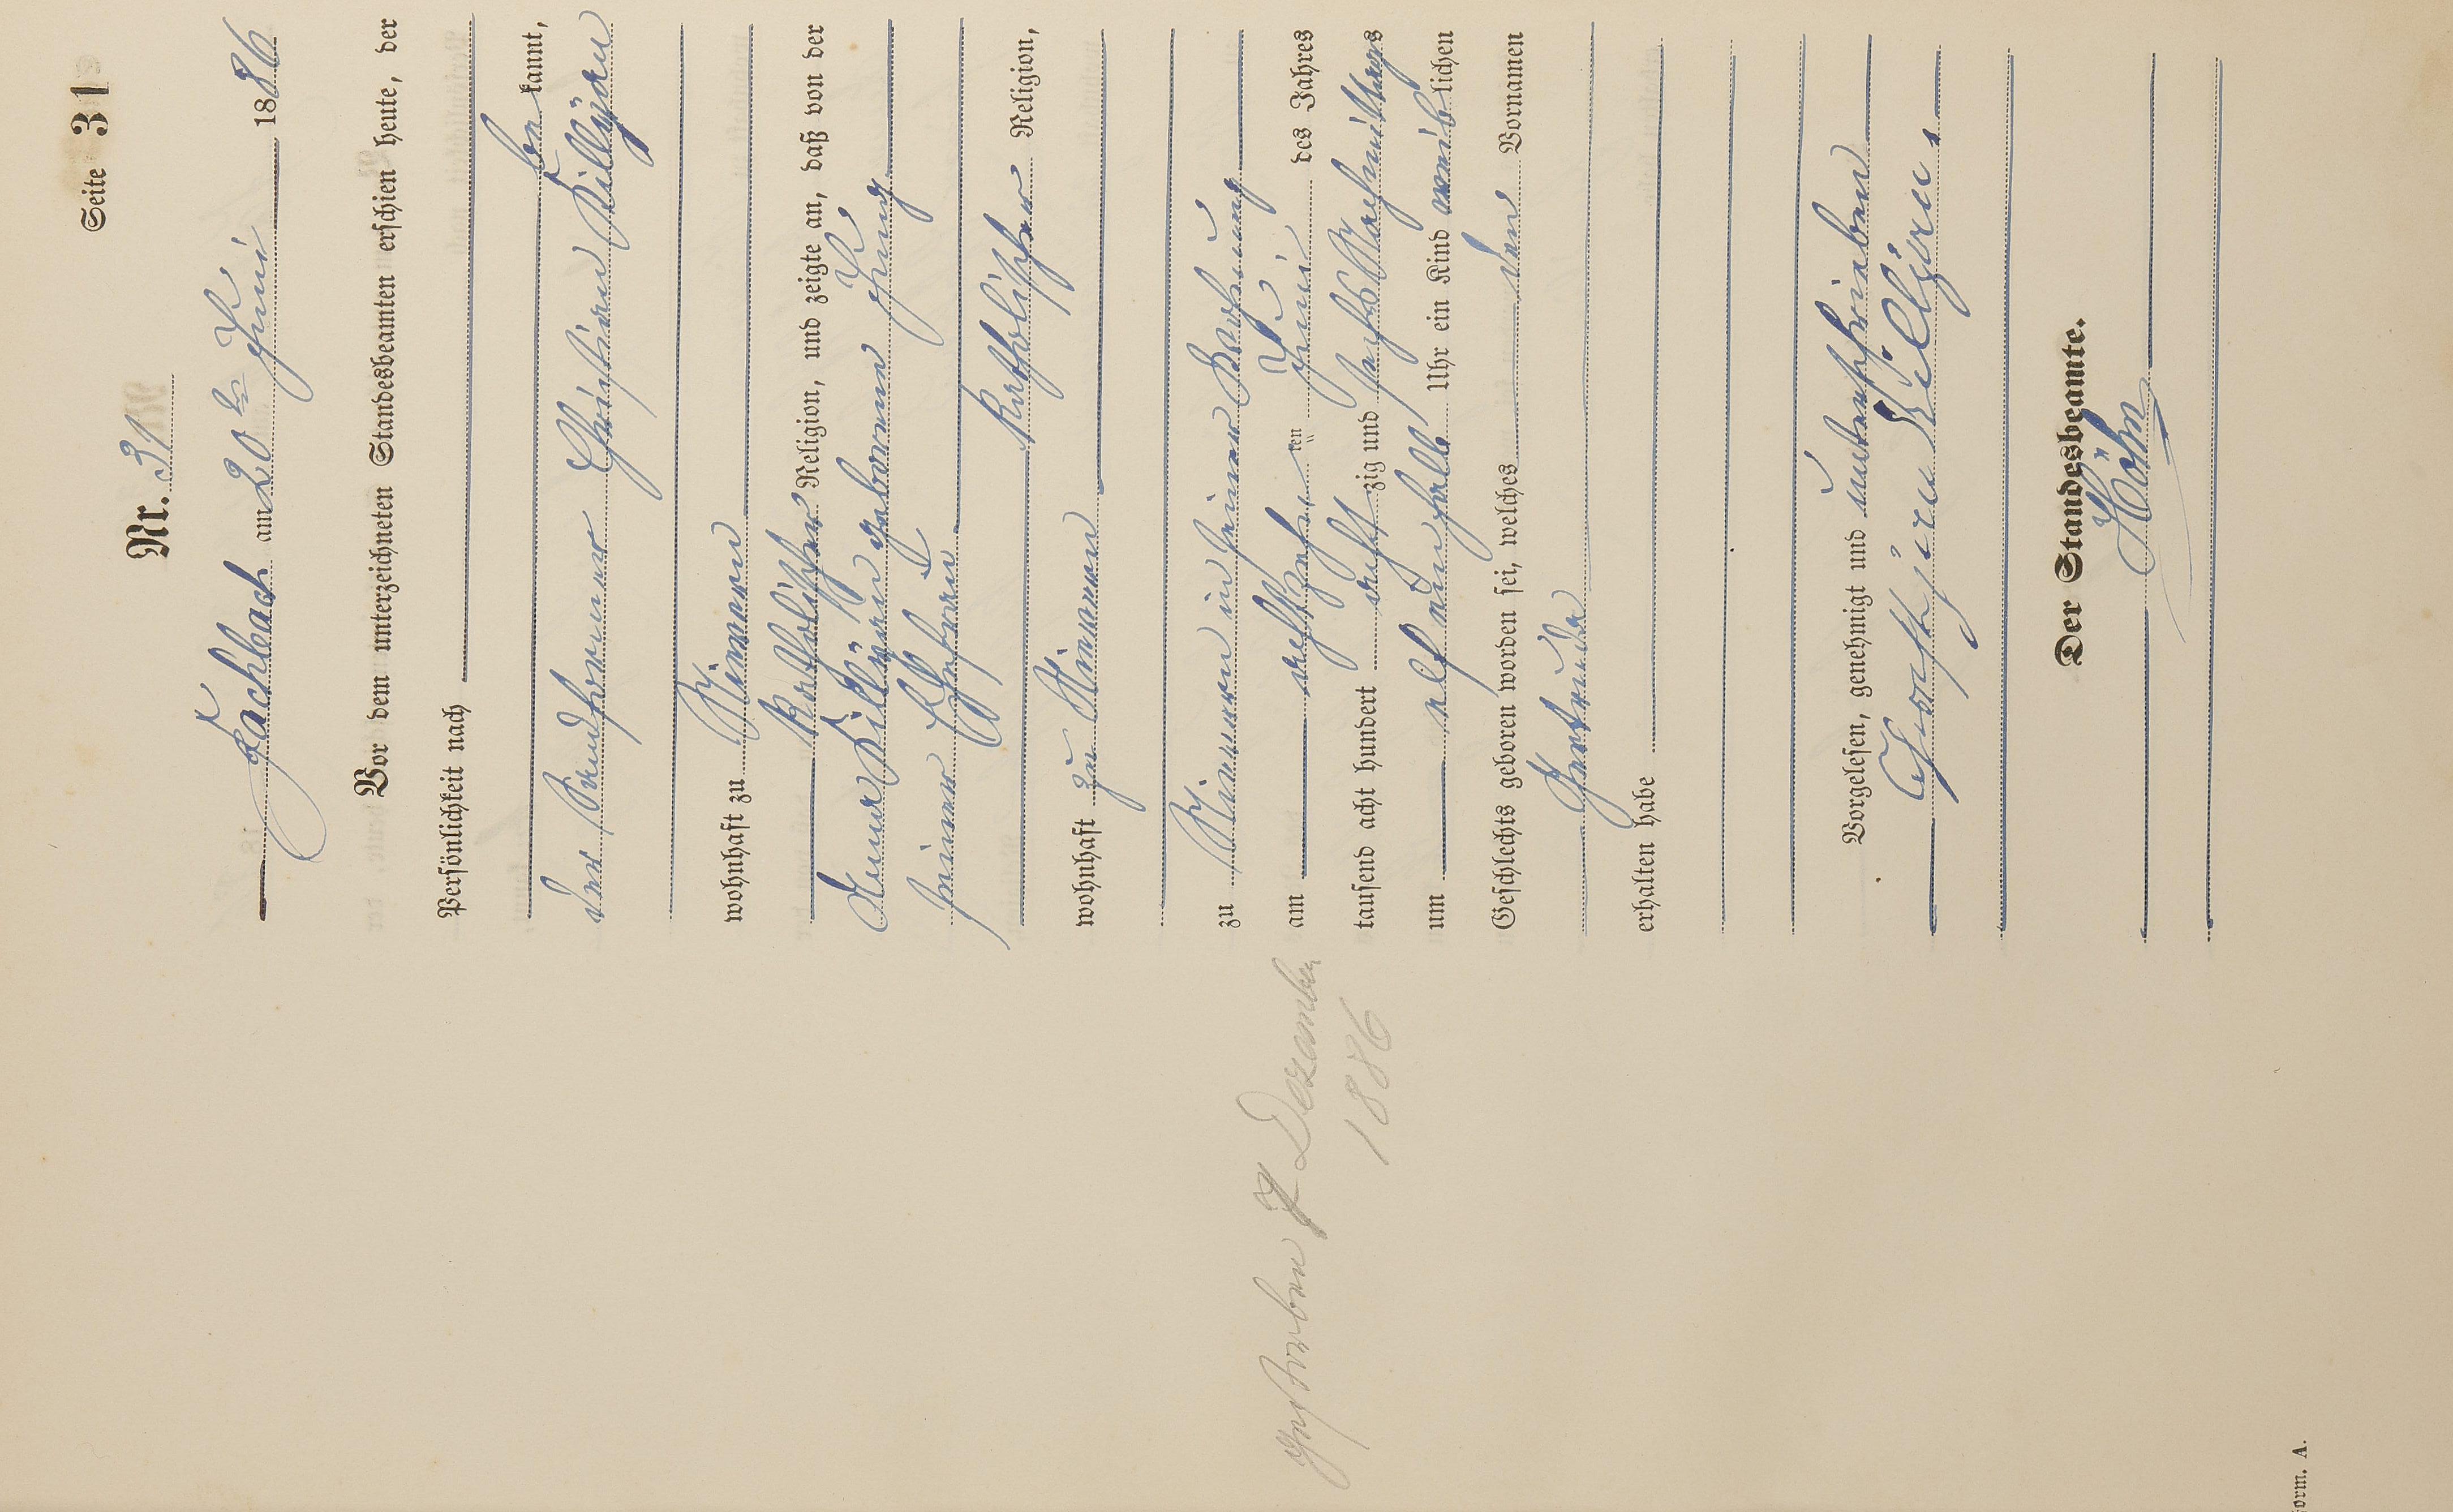 Seite 31
Nr. 31
Fachbach am 20 ten Juni 1886
Vor dem unterzeichneten Standesbeamten erschien heute, der
Persönlichkeit nach
be kannt,
der Sandformer Christian Killgian
wohnhaft zu Nievern
katholischer Religion, und zeigte an, daß von der
Anna Killgian geborene Jung
seiner Ehefrau
katholischer Religion,
wohnhaft zu Nievern
zu Nievern in seiner Wohnung
am achtzehn ten Juni des Jahres
tausend acht hundert acht zig und sechs Nachmittags
um elf ein halb Uhr ein Kind weib lichen
Geschlechts geboren worden sei, welches den Vornamen
Gertruda
erhalten habe
Gestorben 7 Dezember
1886
Vorgelesen, genehmigt und unterschrieben
Killgian
Der Standesbeamte.
Höhn
Form. A.